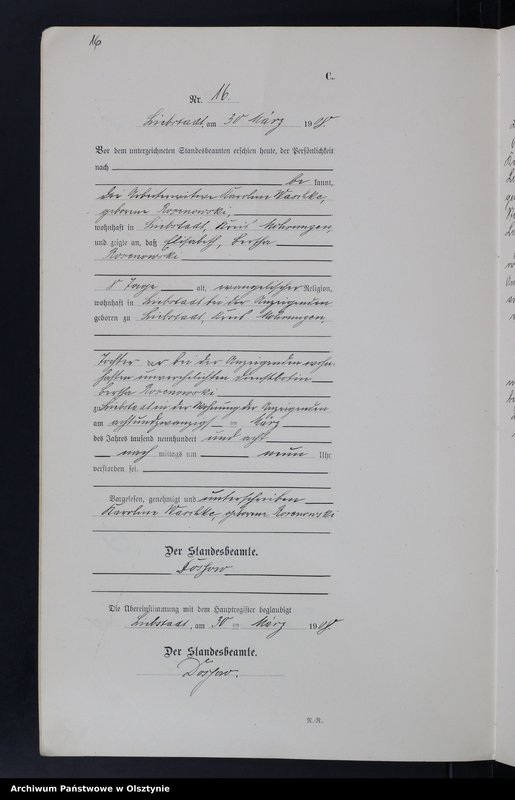 16
C.
Nr. 16.
Liebstadt, am 30 März 1908.
Vor dem unterzeichneten Standesbeamten erschien heute, der Persönlichkeit
nach
be kannt,
die Arbeiterwitwe Karoline
geborene Rosenowski,
wohnhaft in Liebstadt, Kreis Mohrungen,
und zeigte an, daß Elisabeth, Bertha
Rosenowski
8 Tage alt, evangelischer Religion,
wohnhaft in Liebstadt bei der Anzeigenden
geboren zu Liebstadt, Kreis Mohrungen,
Tochter der bei der Anzeigenden wohn
haften unverehelichten Dienstbotin
Bertha Rosenowski
zu Liebstadt in der Wohnung der Anzeigenden
am achtundzwanzig ten März
des Jahres tausend neunhundert und acht
nach mittags um neun Uhr
verstorben sei.
Vorgelesen, genehmigt und unterschrieben
Karoline geborene Rosenowski
Der Standesbeamte.
Dossow
Die Übereinstimmung mit dem Hauptregister beglaubigt
Liebstadt, am 30 ten März 1908.
Der Standesbeamte.
Dossow.
R.-R.
Archiwum Państwowe w Olsztynie